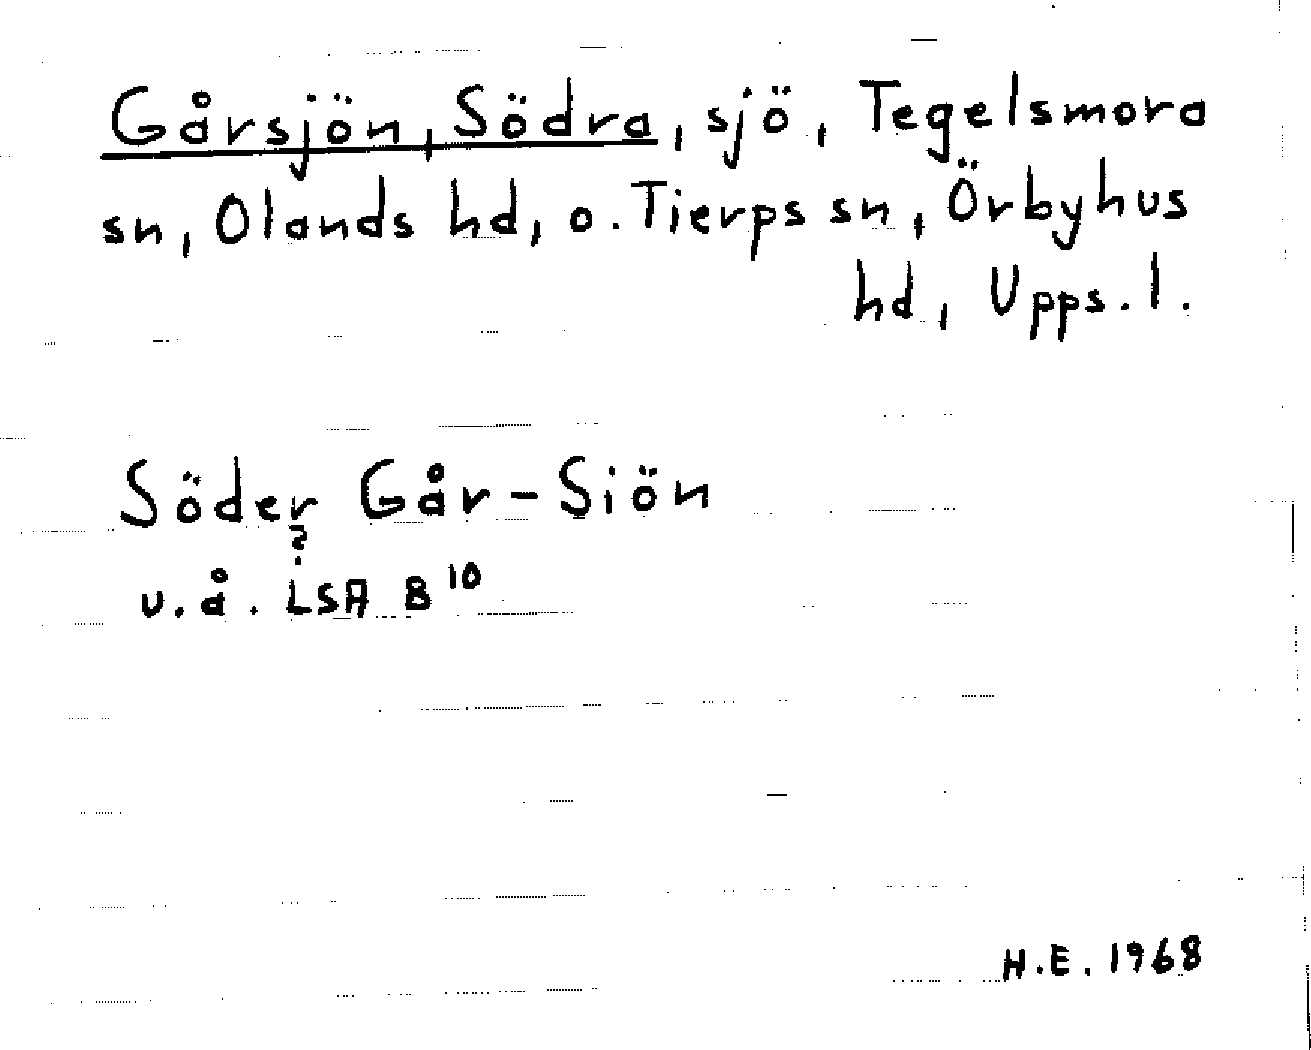 Gårsjön, Södra, sjö, Tegelsmora
sn, Olands hd, o. Tierps sn, Örbyhus
hd, Upps. l.
Söder Går-Siön
?
u.å. LSA B¹⁰
H.E. 1968